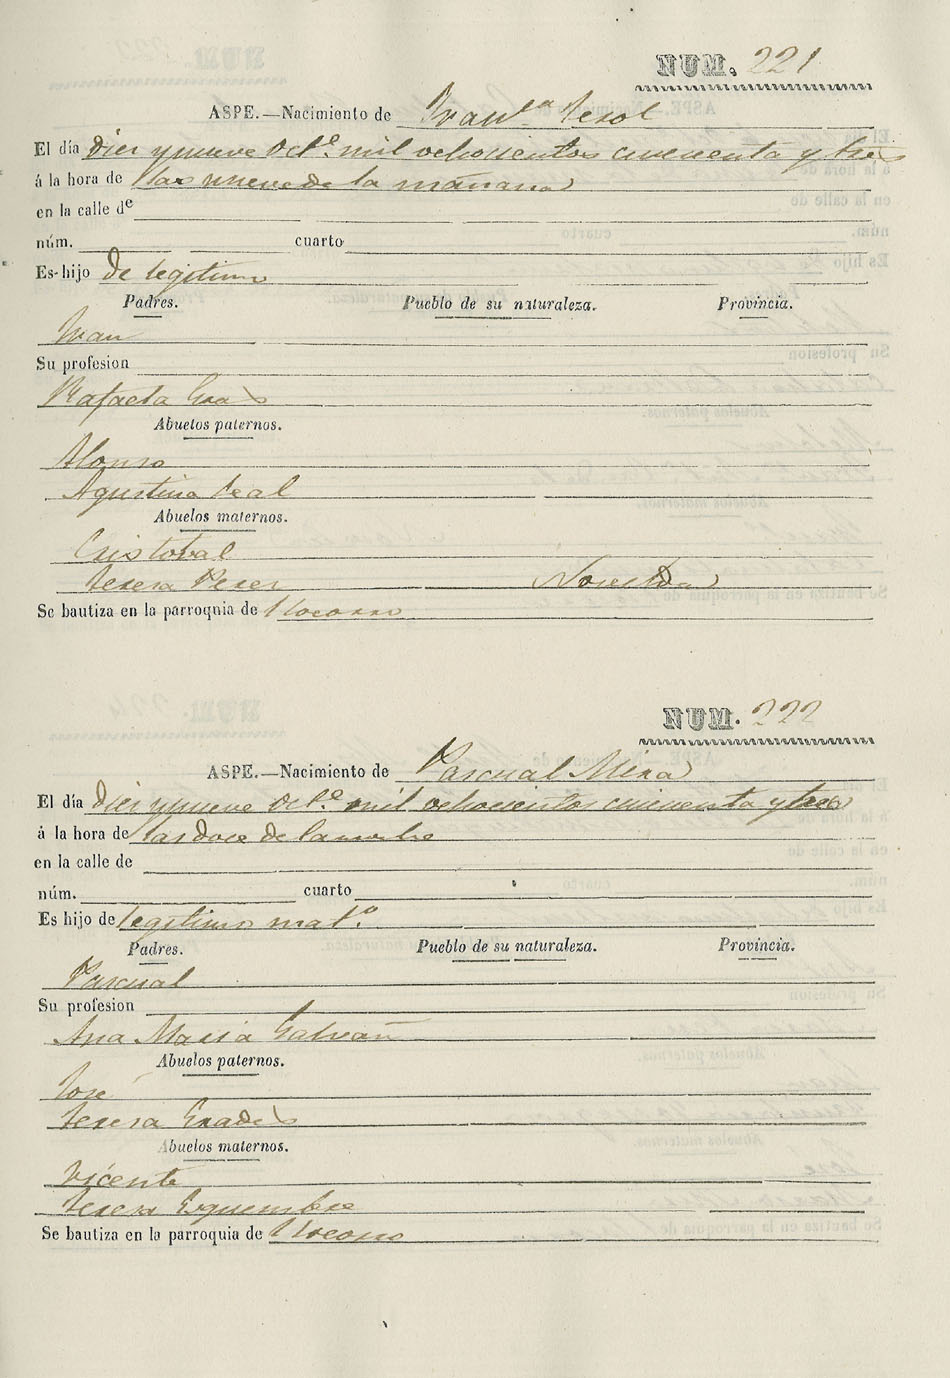 NUM. 221
ASPE.—Nacimiento de Fran.ca Cerol
El día diez y nueve Oct.e mil ochocientos cincuenta y tres
á la hora de las nueve de la mañana
en la calle de
núm. cuarto
Es hijo de legitimo
Padres. Pueblo de su naturaleza. Provincia.
Juan
Su profesion
Rafaela Gras
Abuelos paternos.
Alonso
Agustina Leal
Abuelos maternos.
Cristobal
Teresa Perez Novelda
Se bautiza en la parroquia de Socorro
NUM. 222
ASPE.—Nacimiento de Pascual Mira
El día diez y nueve Oct.e mil ochocientos cincuenta y tres
á la hora de las doce de la noche
en la calle de
núm. cuarto
Es hijo de legitimo mat.o
Padres. Pueblo de su naturaleza. Provincia.
Pascual
Su profesion
Ana Maria Galvañ
Abuelos paternos.
José
Teresa Grades
Abuelos maternos.
Vicente
Teresa Esquembre
Se bautiza en la parroquia de Socorro